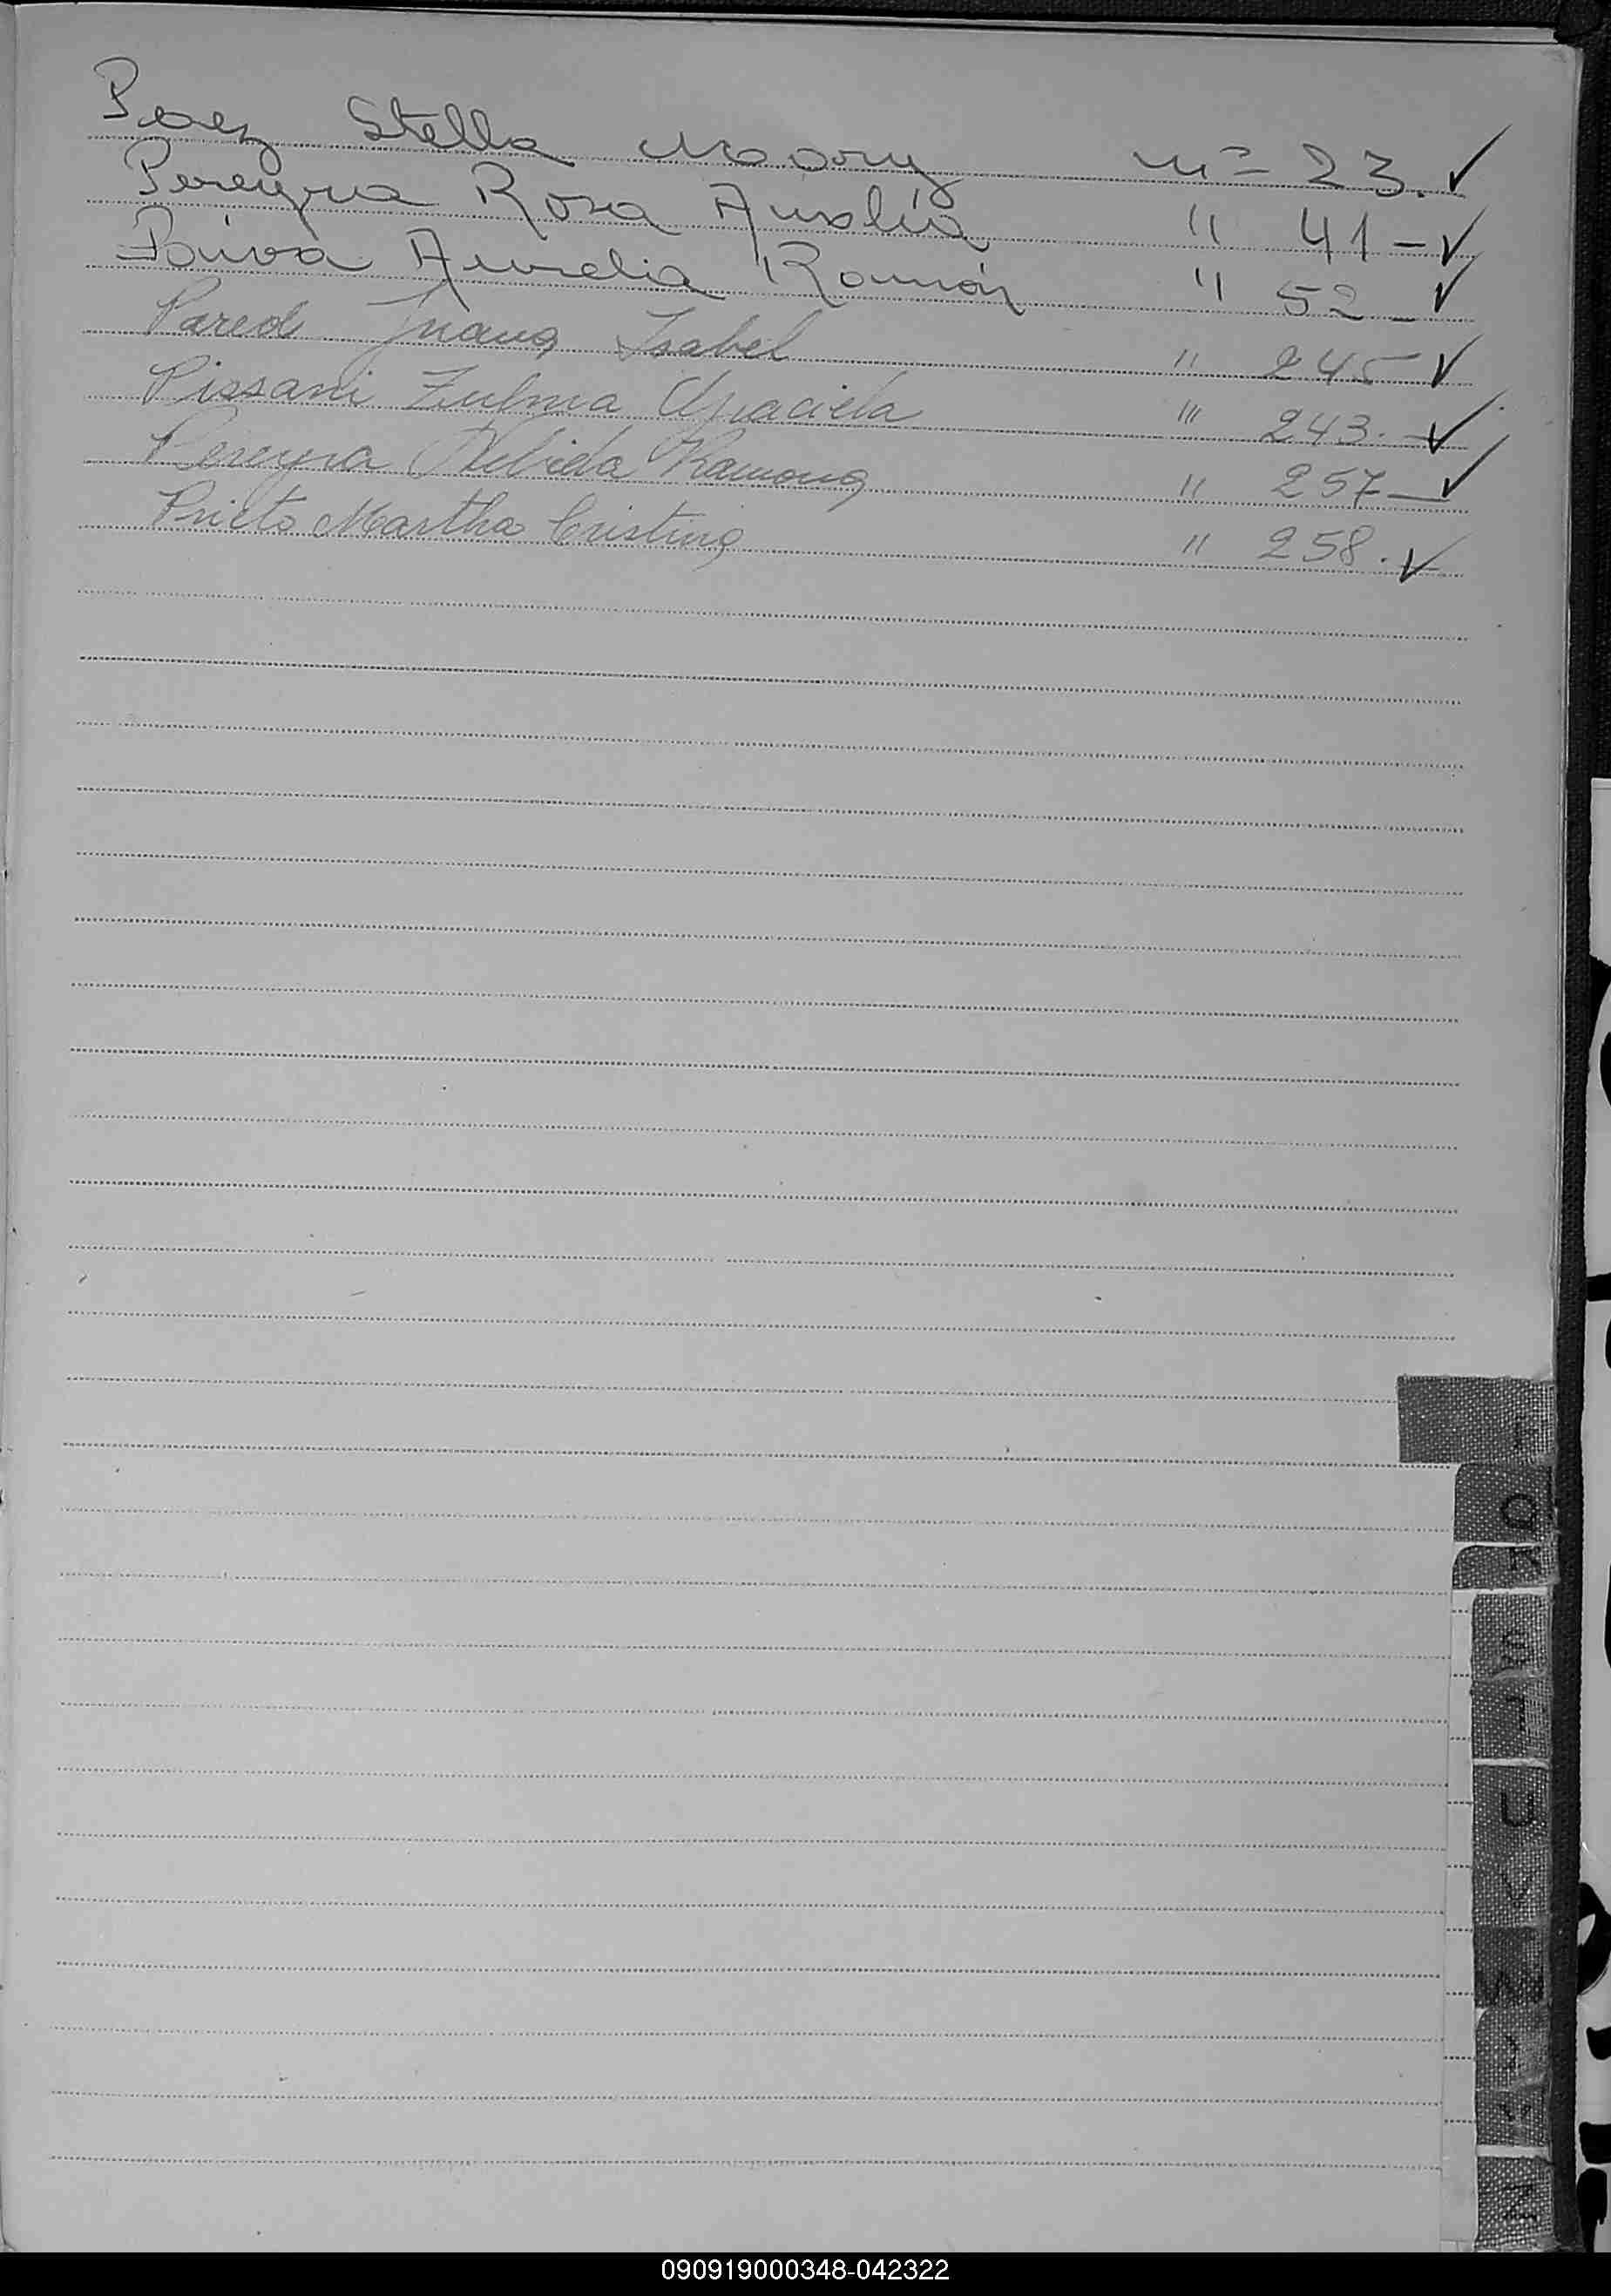 Perez Stella Mary nº 23. ✓
Pereyra Rosa Analía " 41 - ✓
Paiva Aurelia Román " 52 - ✓
Pared Juana Isabel " 245 - ✓
Pissani Zulma Graciela " 243. - ✓
Pereyra Ramona " 257 - ✓
Prieto Martha Cristina " 258. ✓
Q
R
S
T
U
V
W
X
Y
Z
090919000348-042322